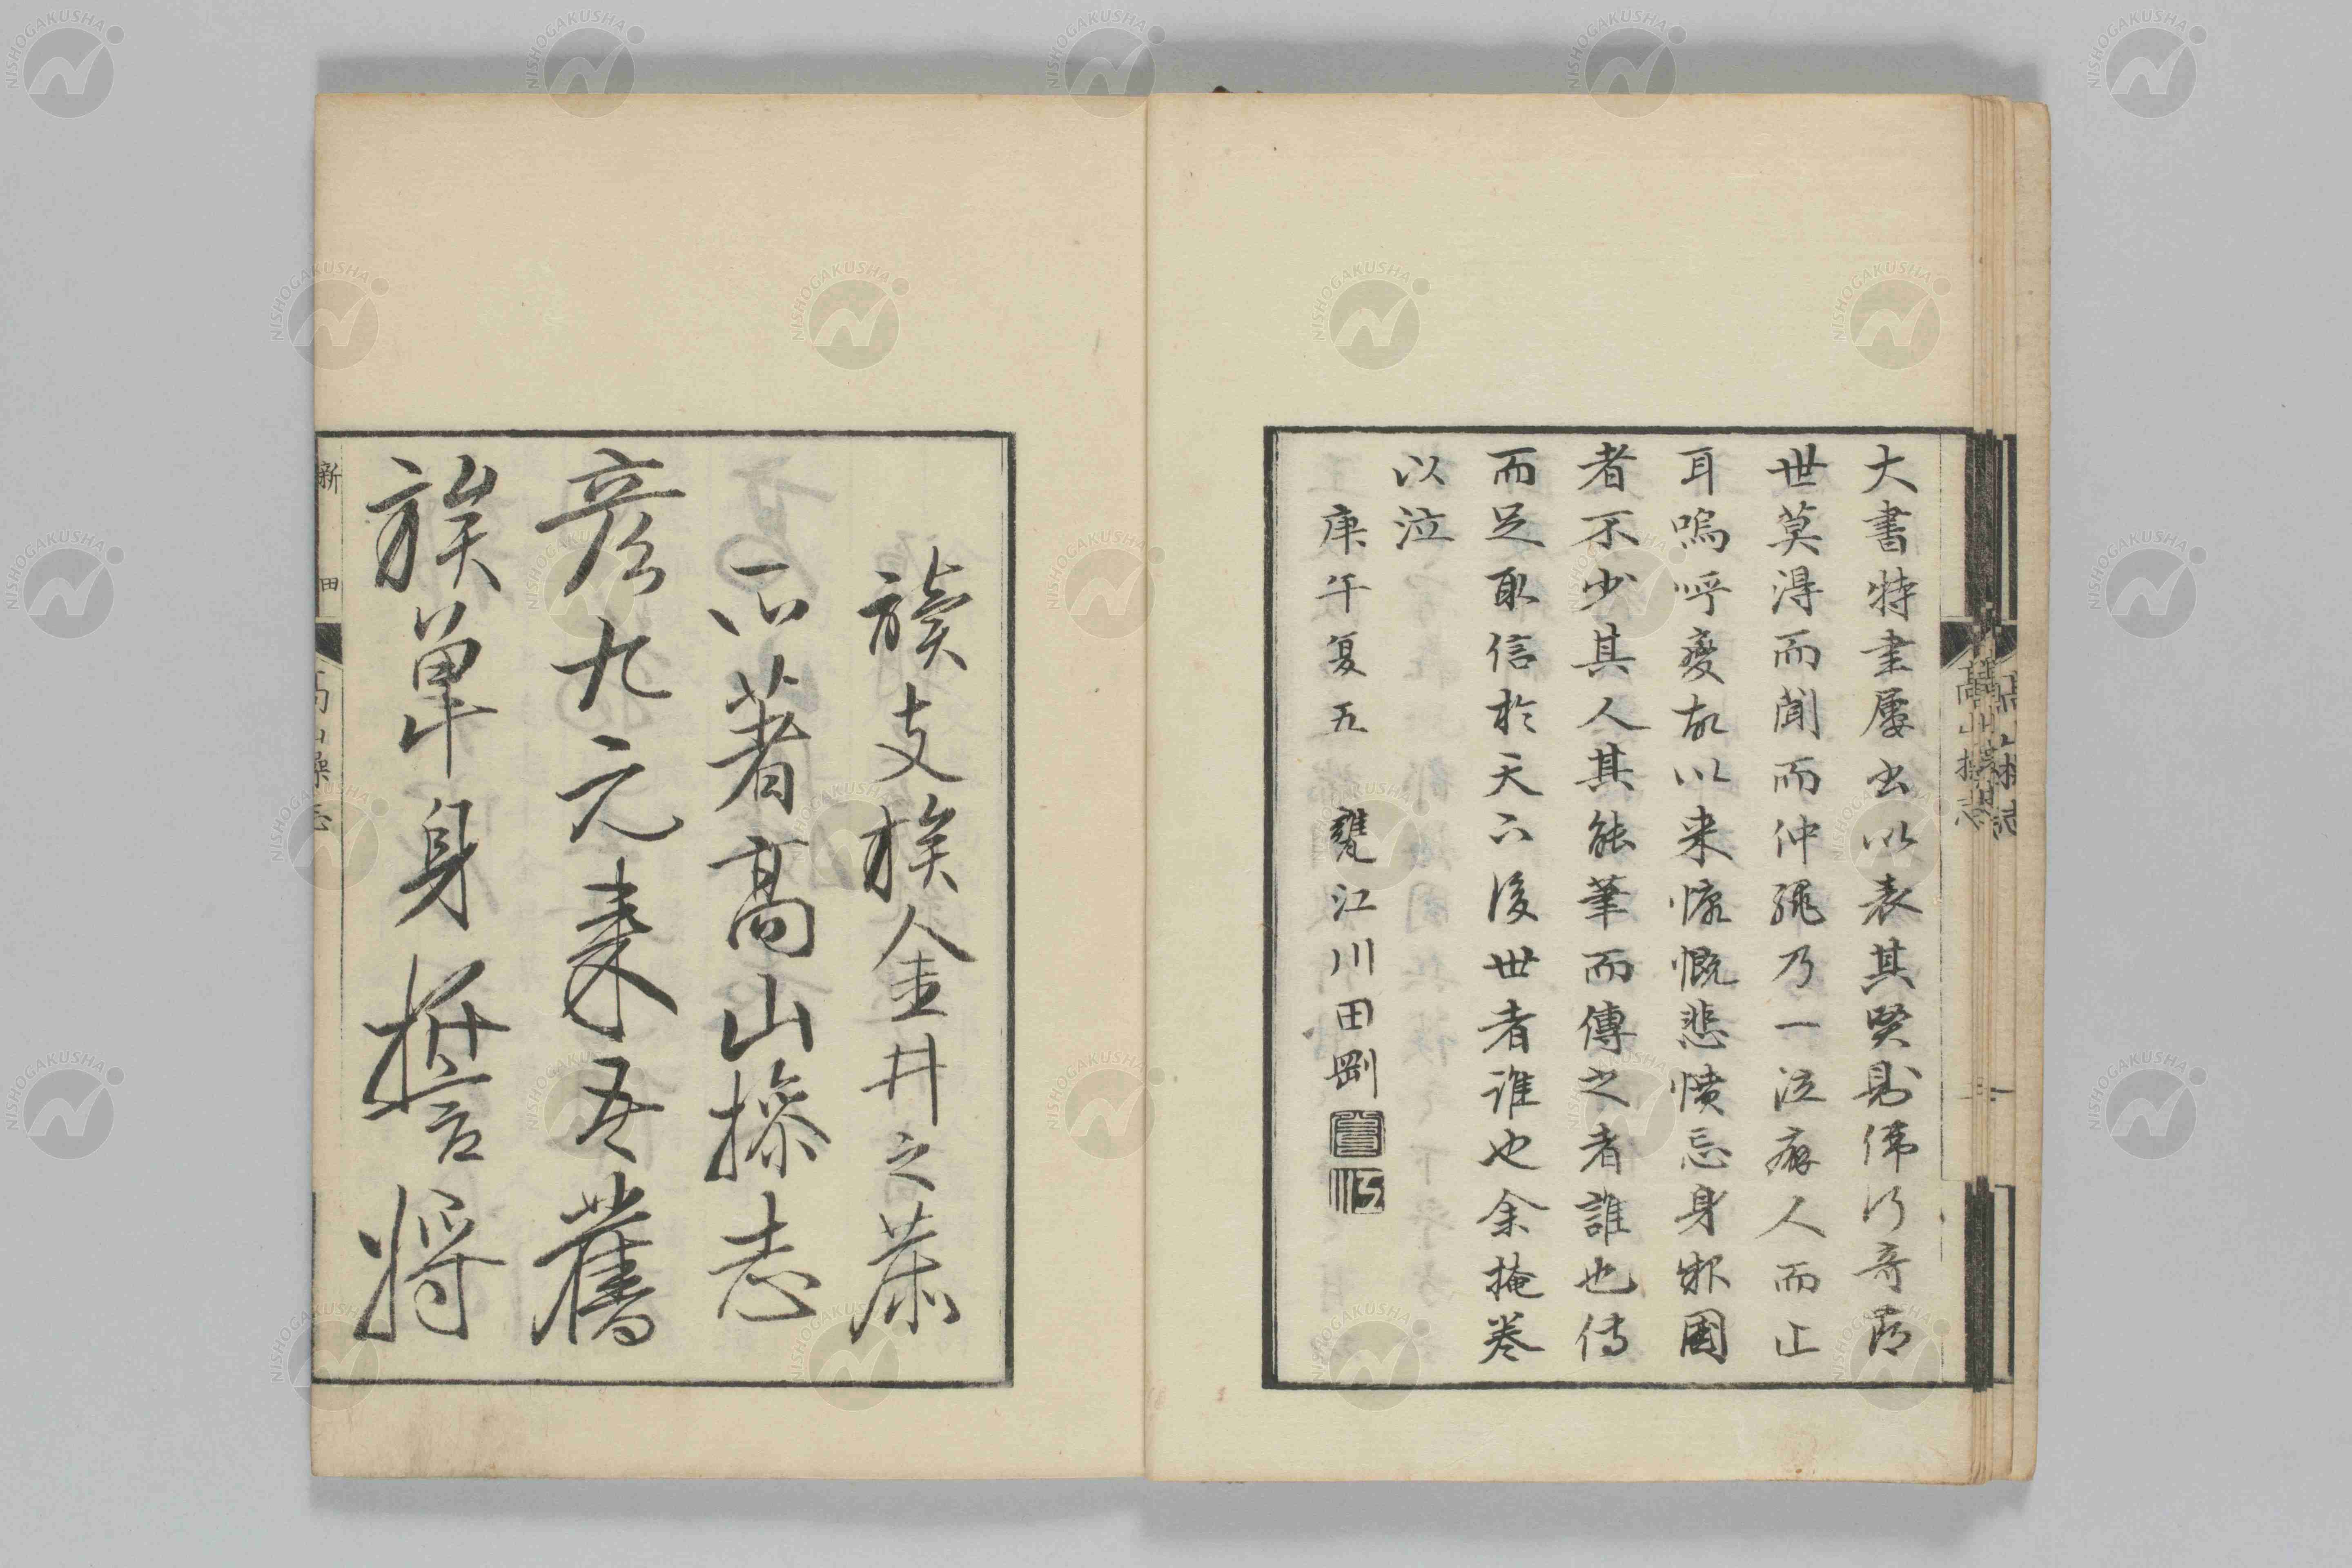 大書特書屢書以表其賢則偉行奇節
世莫得而聞而仲繩乃一泣癖人而止
耳嗚呼變故以来慷慨悲憤忘身報國
者不少其人其能筆而傳之者誰也傳
而足取信於天下後世者誰也余掩巻
以泣
庚午夏五 甕江川田剛
讀支族金井之恭
所著高山操志
彦九元来吾舊
族單身誓将
新田
高山操志
NISHOGAKUSHA